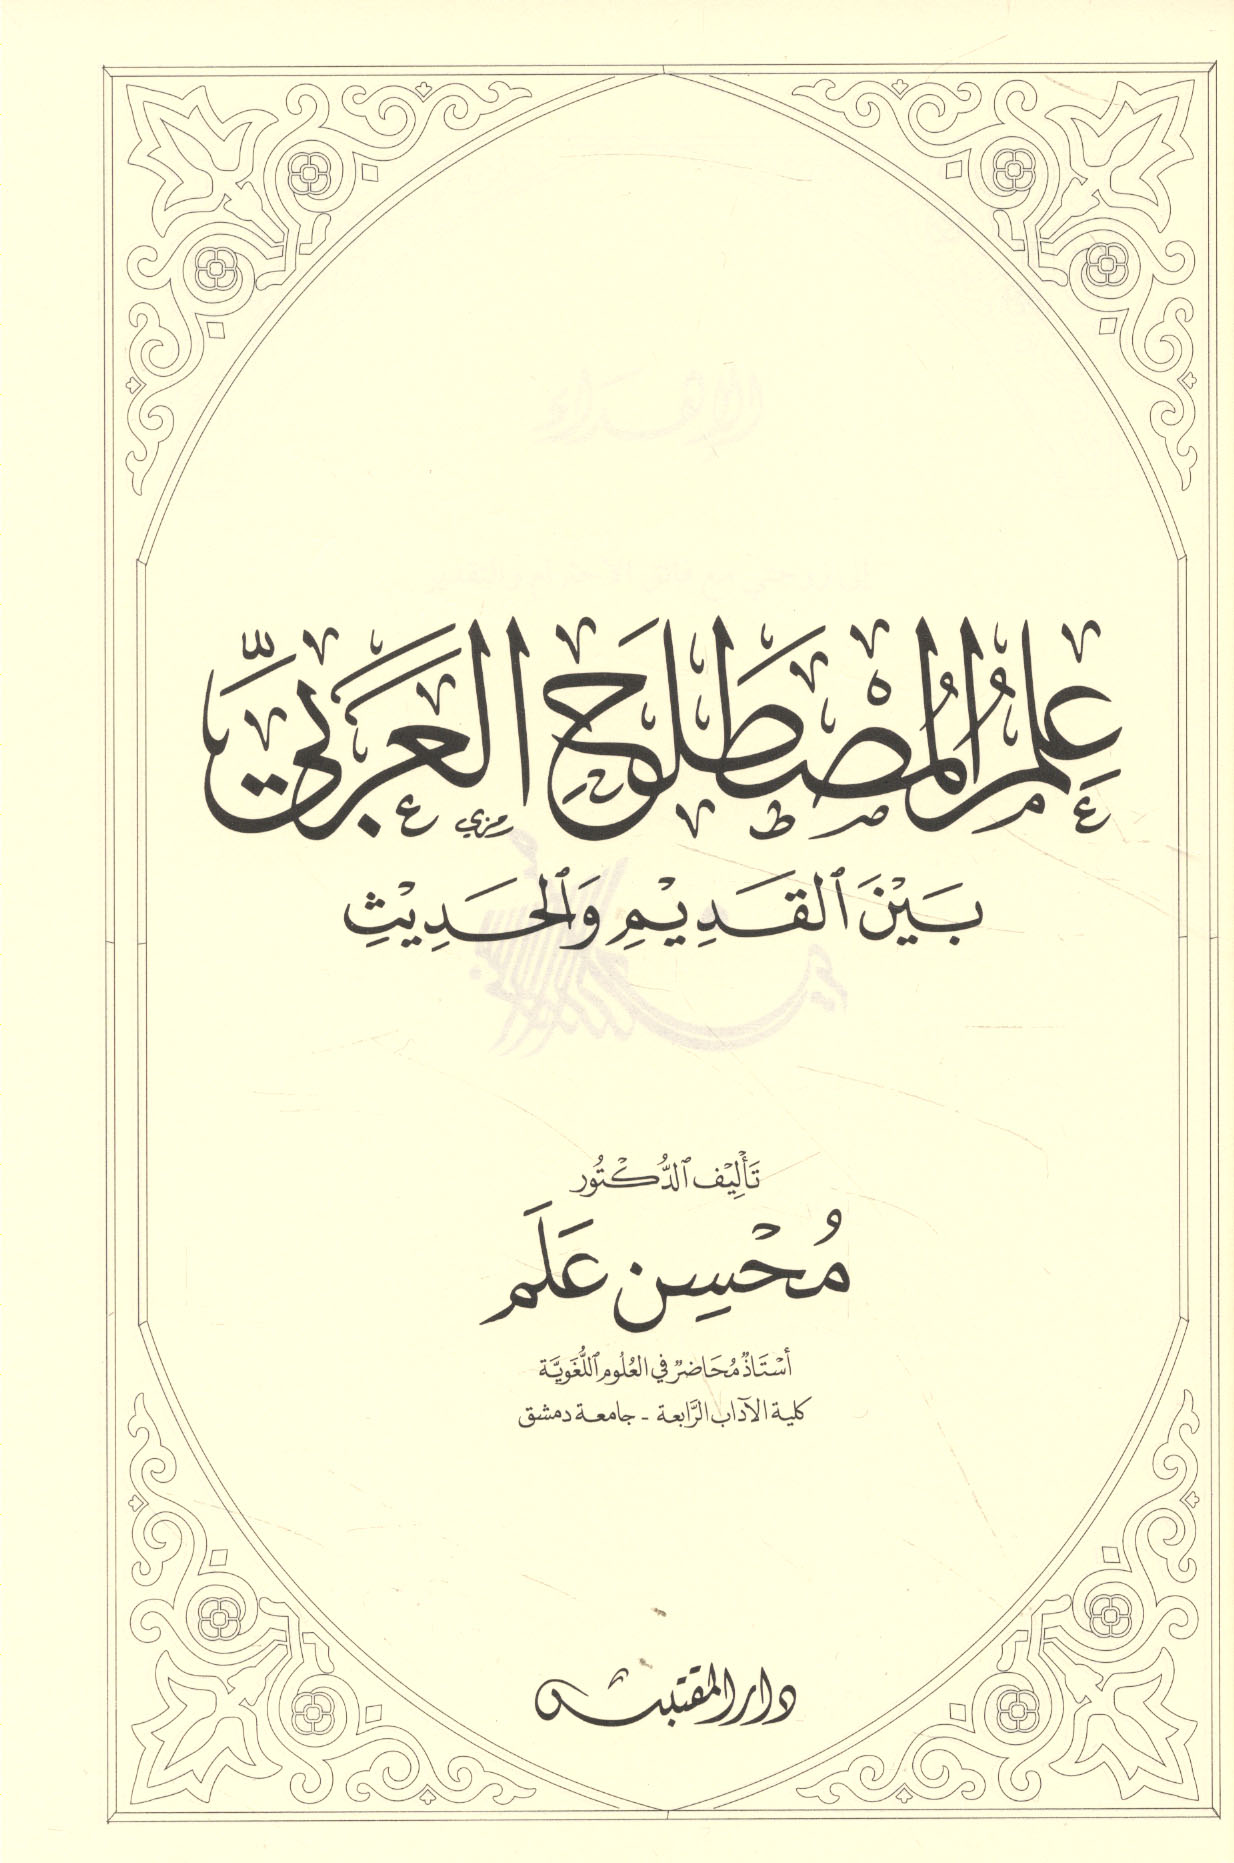 عِلْمُ الْمُصْطَلَحِ الْعَرَبِيِّ
بَيْنَ ٱلْقَدِيْمِ وَٱلْحَدِيْثِ
تَأْلِيْف ٱلدُّكْتُور
مُحْسِن عَلَم
أُسْتَاذٌ مُحَاضِرٌ في العُلُوم ٱللُّغَوِيَّة
كلية الآداب الرَّابعة - جامعة دمشق
دار المقتبس